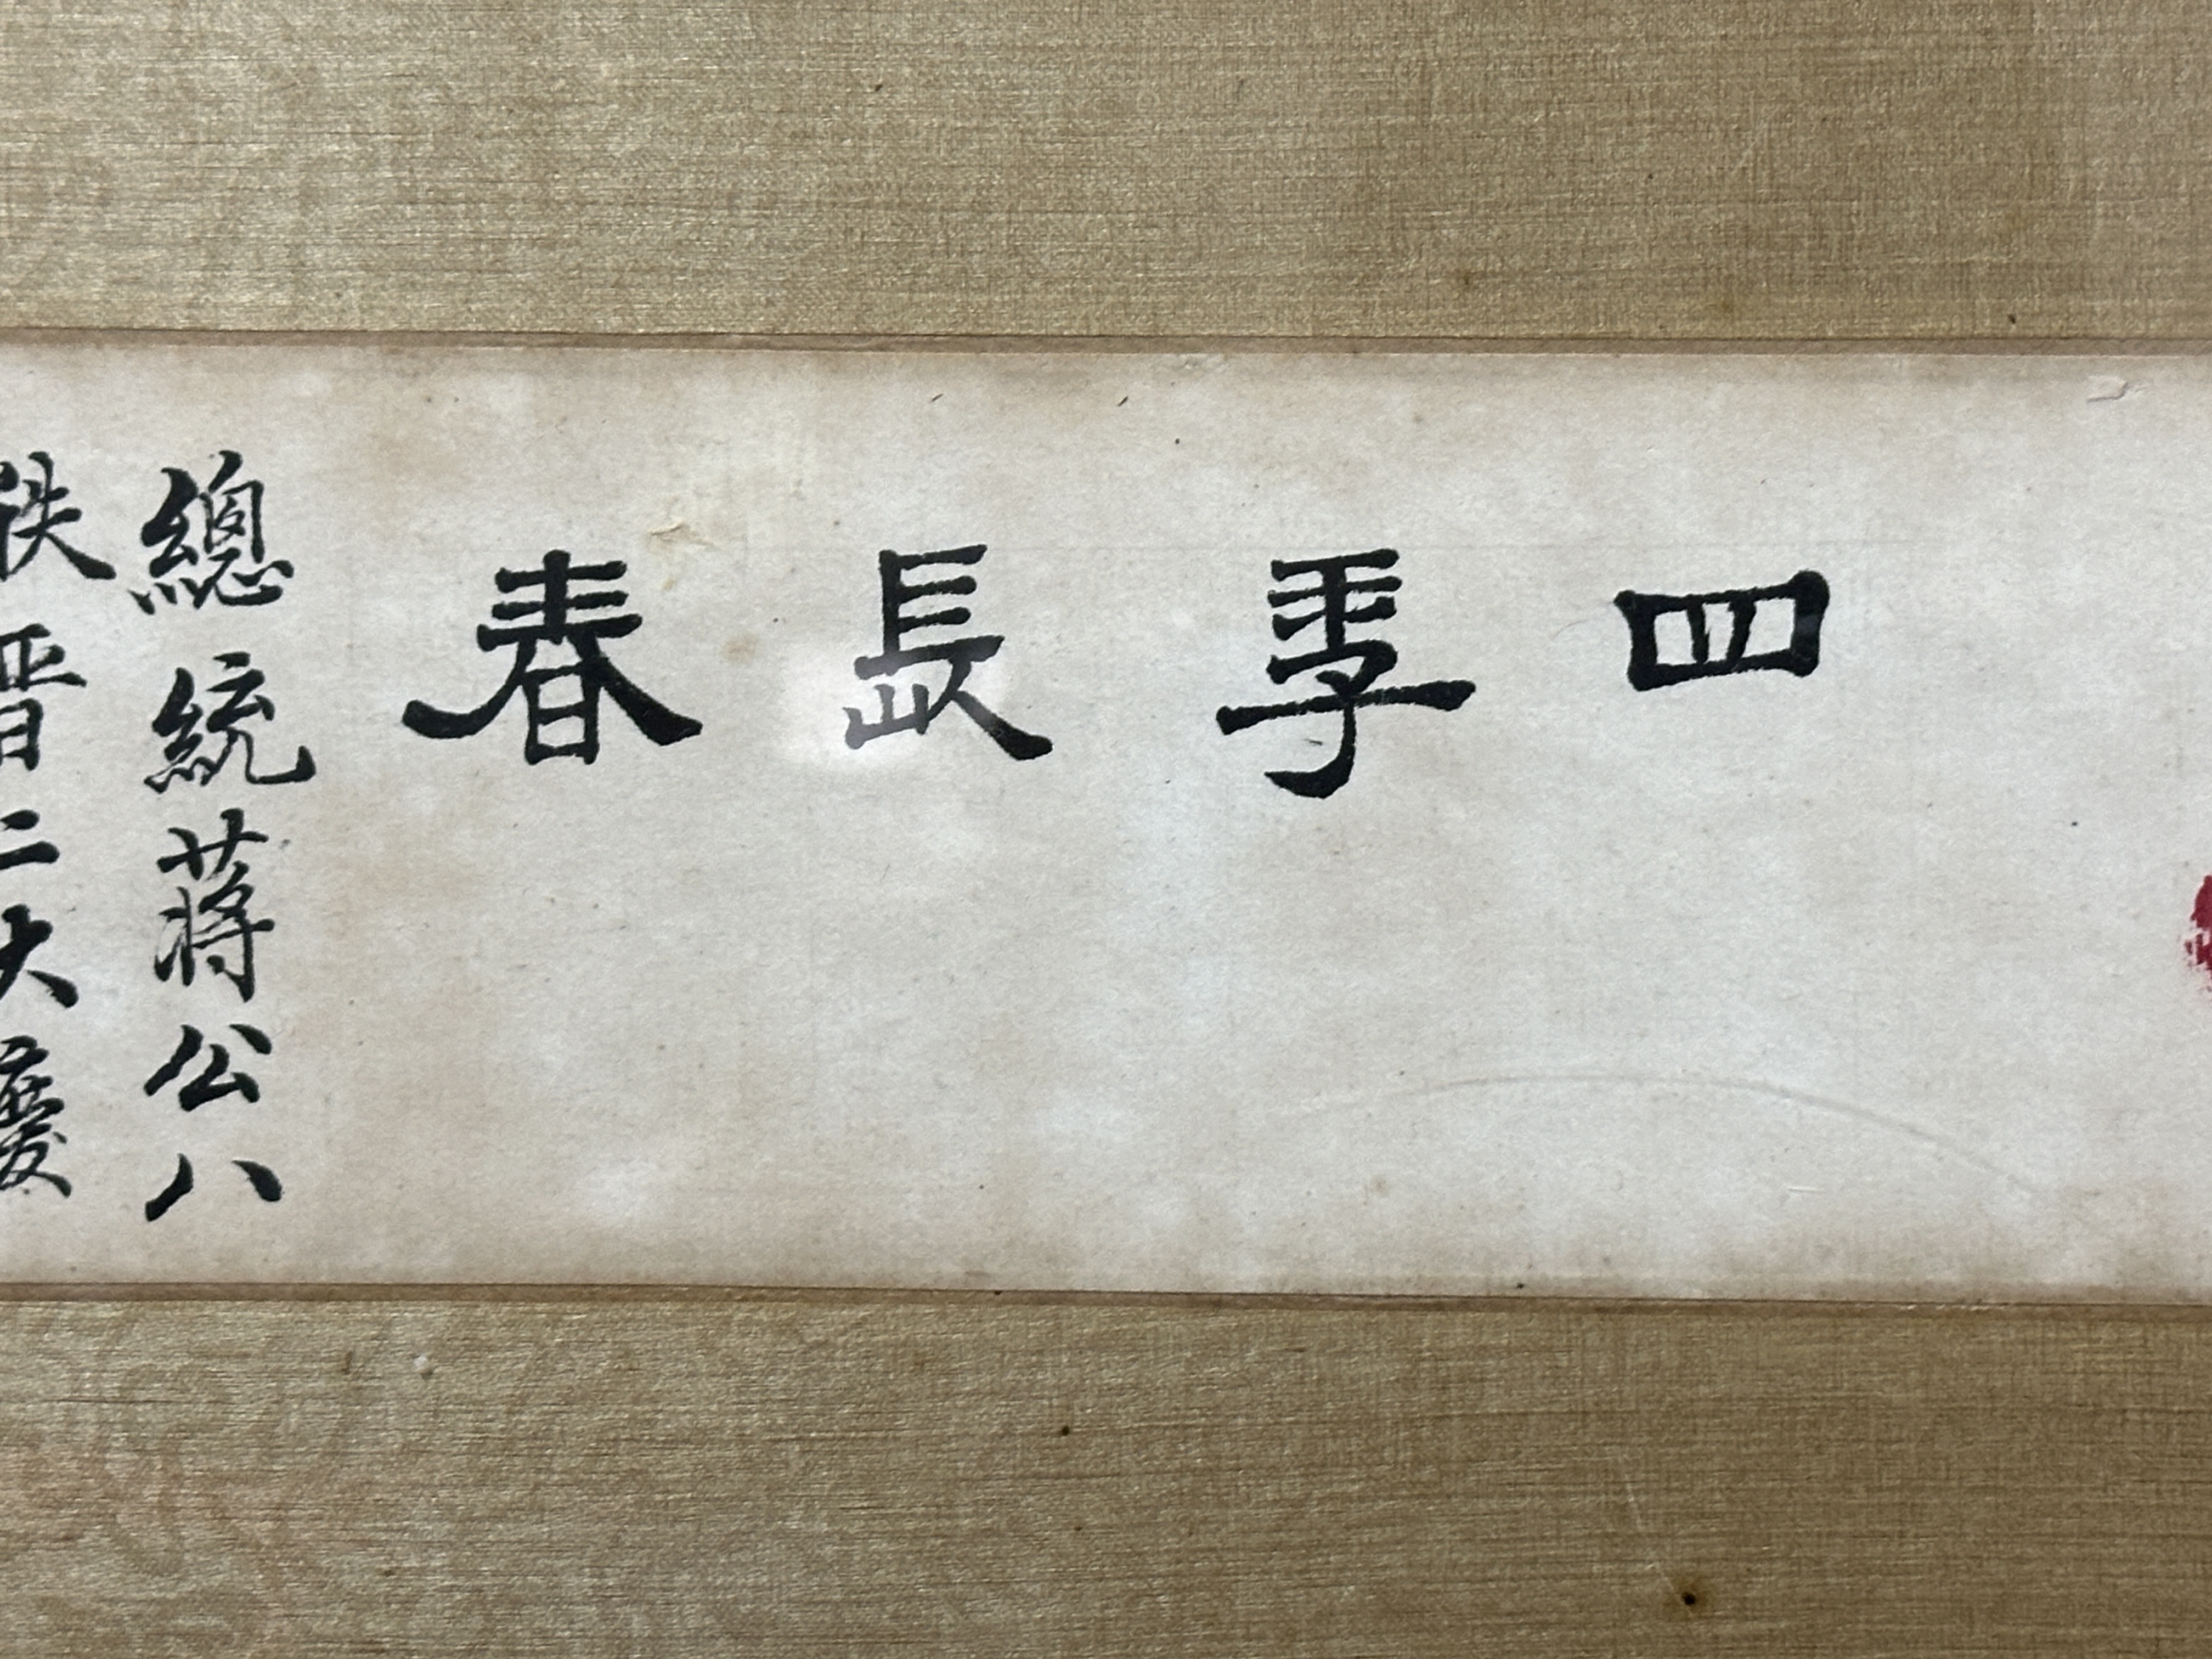 四季長春
總統蔣公八
秩晉二大慶